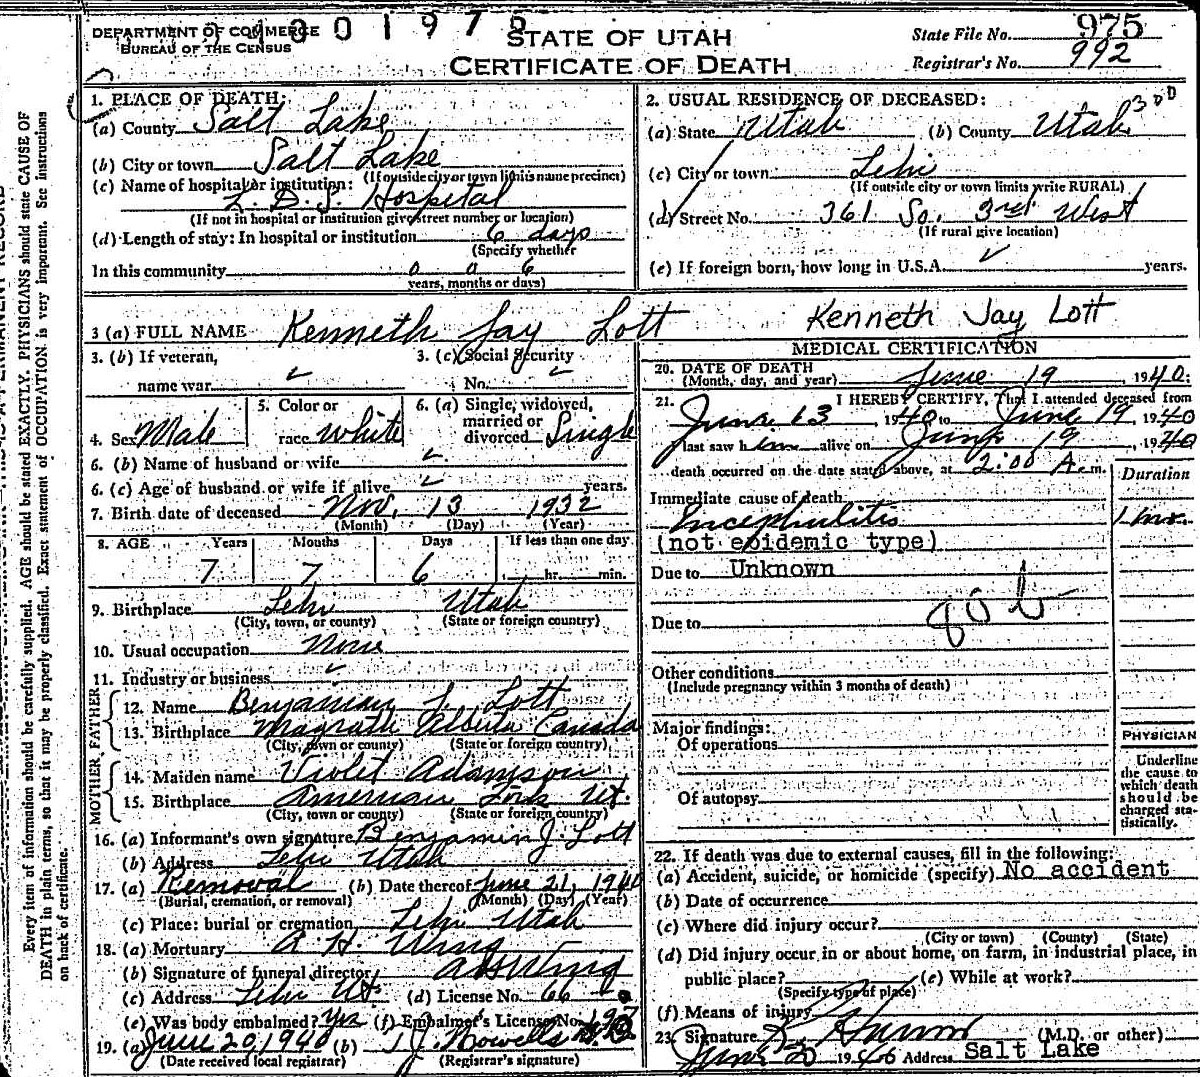 DEPARTMENT OF COMMERCE
BUREAU OF THE CENSUS
3 0 1 9 7 5
STATE OF UTAH
CERTIFICATE OF DEATH
State File No. 975
Registrar's No. 992
1. PLACE OF DEATH:
(a) County Salt Lake
(b) City or town Salt Lake
(If outside city or town limits name precinct)
(c) Name of hospital or institution:
L. D. S. Hospital
(If not in hospital or institution give street number or location)
(d) Length of stay: In hospital or institution 6 days
(Specify whether
In this community 0 0 6
years, months or days)
2. USUAL RESIDENCE OF DECEASED:
(a) State Utah (b) County Utah
(c) City or town Lehi
(If outside city or town limits write RURAL)
(d) Street No. 361 So. 3rd West
(If rural give location)
(e) If foreign born, how long in U.S.A. years.
3 (a) FULL NAME Kenneth Jay Lott
Kenneth Jay Lott
3. (b) If veteran,
name war
3. (c) Social Security
No.
4. Sex Male
5. Color or
race White
6. (a) Single, widowed,
married or
divorced Single
6. (b) Name of husband or wife
6. (c) Age of husband or wife if alive years.
7. Birth date of deceased Nov. 13 1932
(Month) (Day) (Year)
8. AGE Years Months Days If less than one day
7 7 6 hr. min.
9. Birthplace Lehi Utah
(City, town, or county) (State or foreign country)
10. Usual occupation None
11. Industry or business
FATHER
12. Name Benjamin J. Lott
13. Birthplace Magrath Alberta Canada
(City, town or county) (State or foreign country)
MOTHER
14. Maiden name Violet Adamson
15. Birthplace American Fork Ut.
(City, town or county) (State or foreign country)
16. (a) Informant's own signature Benjamin J. Lott
(b) Address Lehi Utah
17. (a) Removal (b) Date thereof June 21, 1940
(Burial, cremation, or removal) (Month) (Day) (Year)
(c) Place: burial or cremation Lehi Utah
18. (a) Mortuary A. H. Wing
(b) Signature of funeral director
(c) Address Lehi Ut. (d) License No. 66
(e) Was body embalmed? Yes (f) Embalmer's License No.
19. (a) June 20, 1940 (b)
(Date received local registrar) (Registrar's signature)
MEDICAL CERTIFICATION
20. DATE OF DEATH
(Month, day, and year) June 19, 1940:
21. I HEREBY CERTIFY, That I attended deceased from
June 13, 1940 to June 19, 1940
last saw him alive on June 19, 1940
death occurred on the date stated above, at 2:00 A. m.
Duration
Immediate cause of death
Encephalitis 1 mo.
(not epidemic type)
Due to Unknown
80 b
Due to
Other conditions
(Include pregnancy within 3 months of death)
Major findings:
Of operations
Of autopsy
PHYSICIAN
Underline
the cause to
which death
should be
charged sta-
tistically.
22. If death was due to external causes, fill in the following:
(a) Accident, suicide, or homicide (specify) No accident
(b) Date of occurrence
(c) Where did injury occur?
(City or town) (County) (State)
(d) Did injury occur in or about home, on farm, in industrial place, in
public place? (e) While at work?
(Specify type of place)
(f) Means of injury
23. Signature (M.D. or other)
June 20 1940 Address Salt Lake
Every item of information should be carefully supplied. AGE should be stated EXACTLY. PHYSICIANS should state CAUSE OF
DEATH in plain terms, so that it may be properly classified. Exact statement of OCCUPATION is very important. See instructions
on back of certificate.